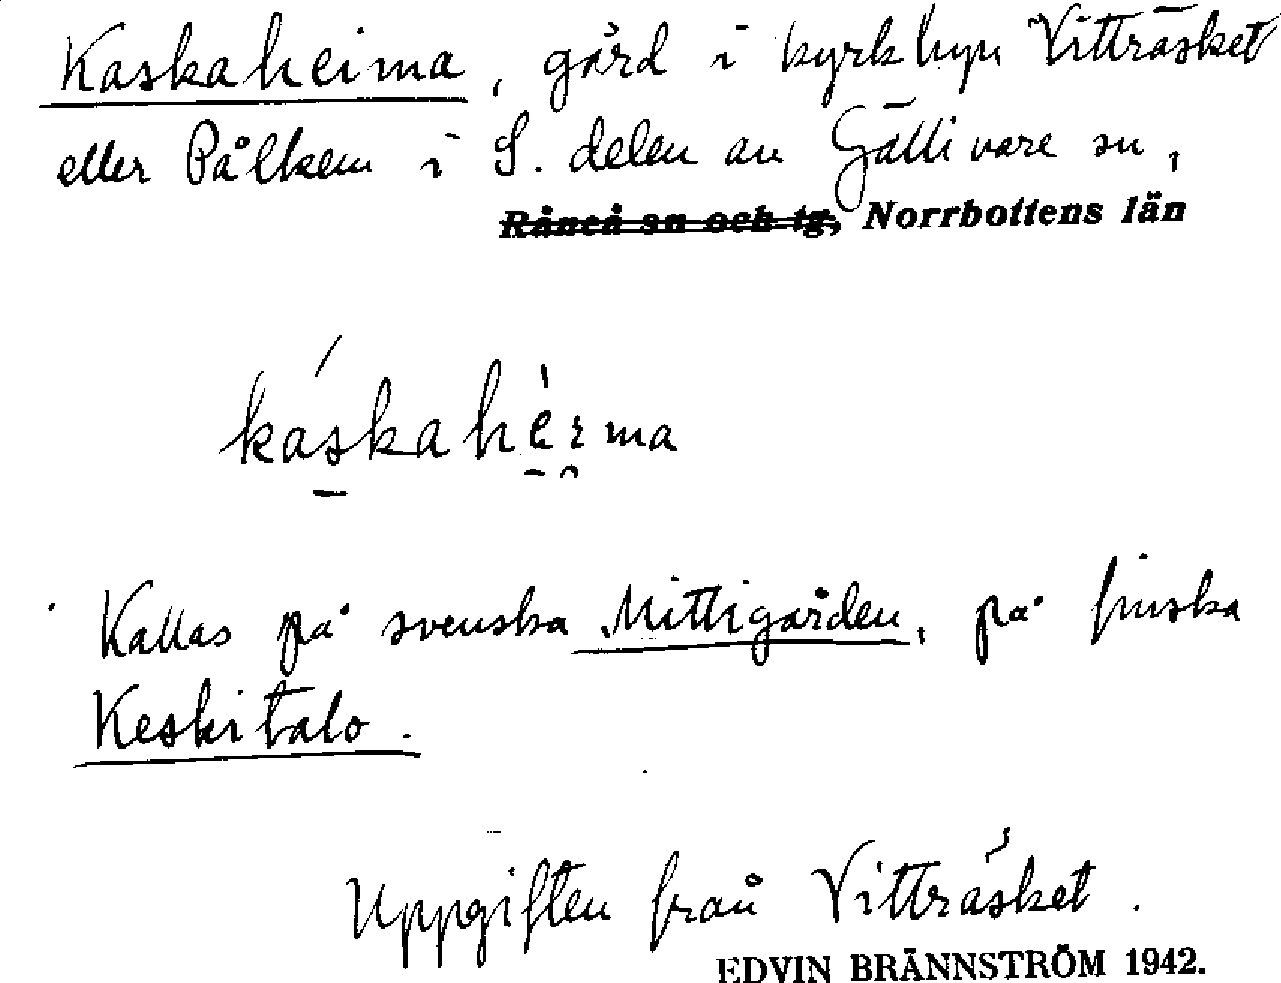 Kaskaheima, gård i kyrkbyn Vitträsket
eller Pålkem i S. delen av Gällivare sn,
Råneå sn och tg, Norrbottens län
káskahèıma
Kallas på svenska Mittigården, på finska
Keskitalo.
Uppgiften från Vitträsket.
EDVIN BRÄNNSTRÖM 1942.